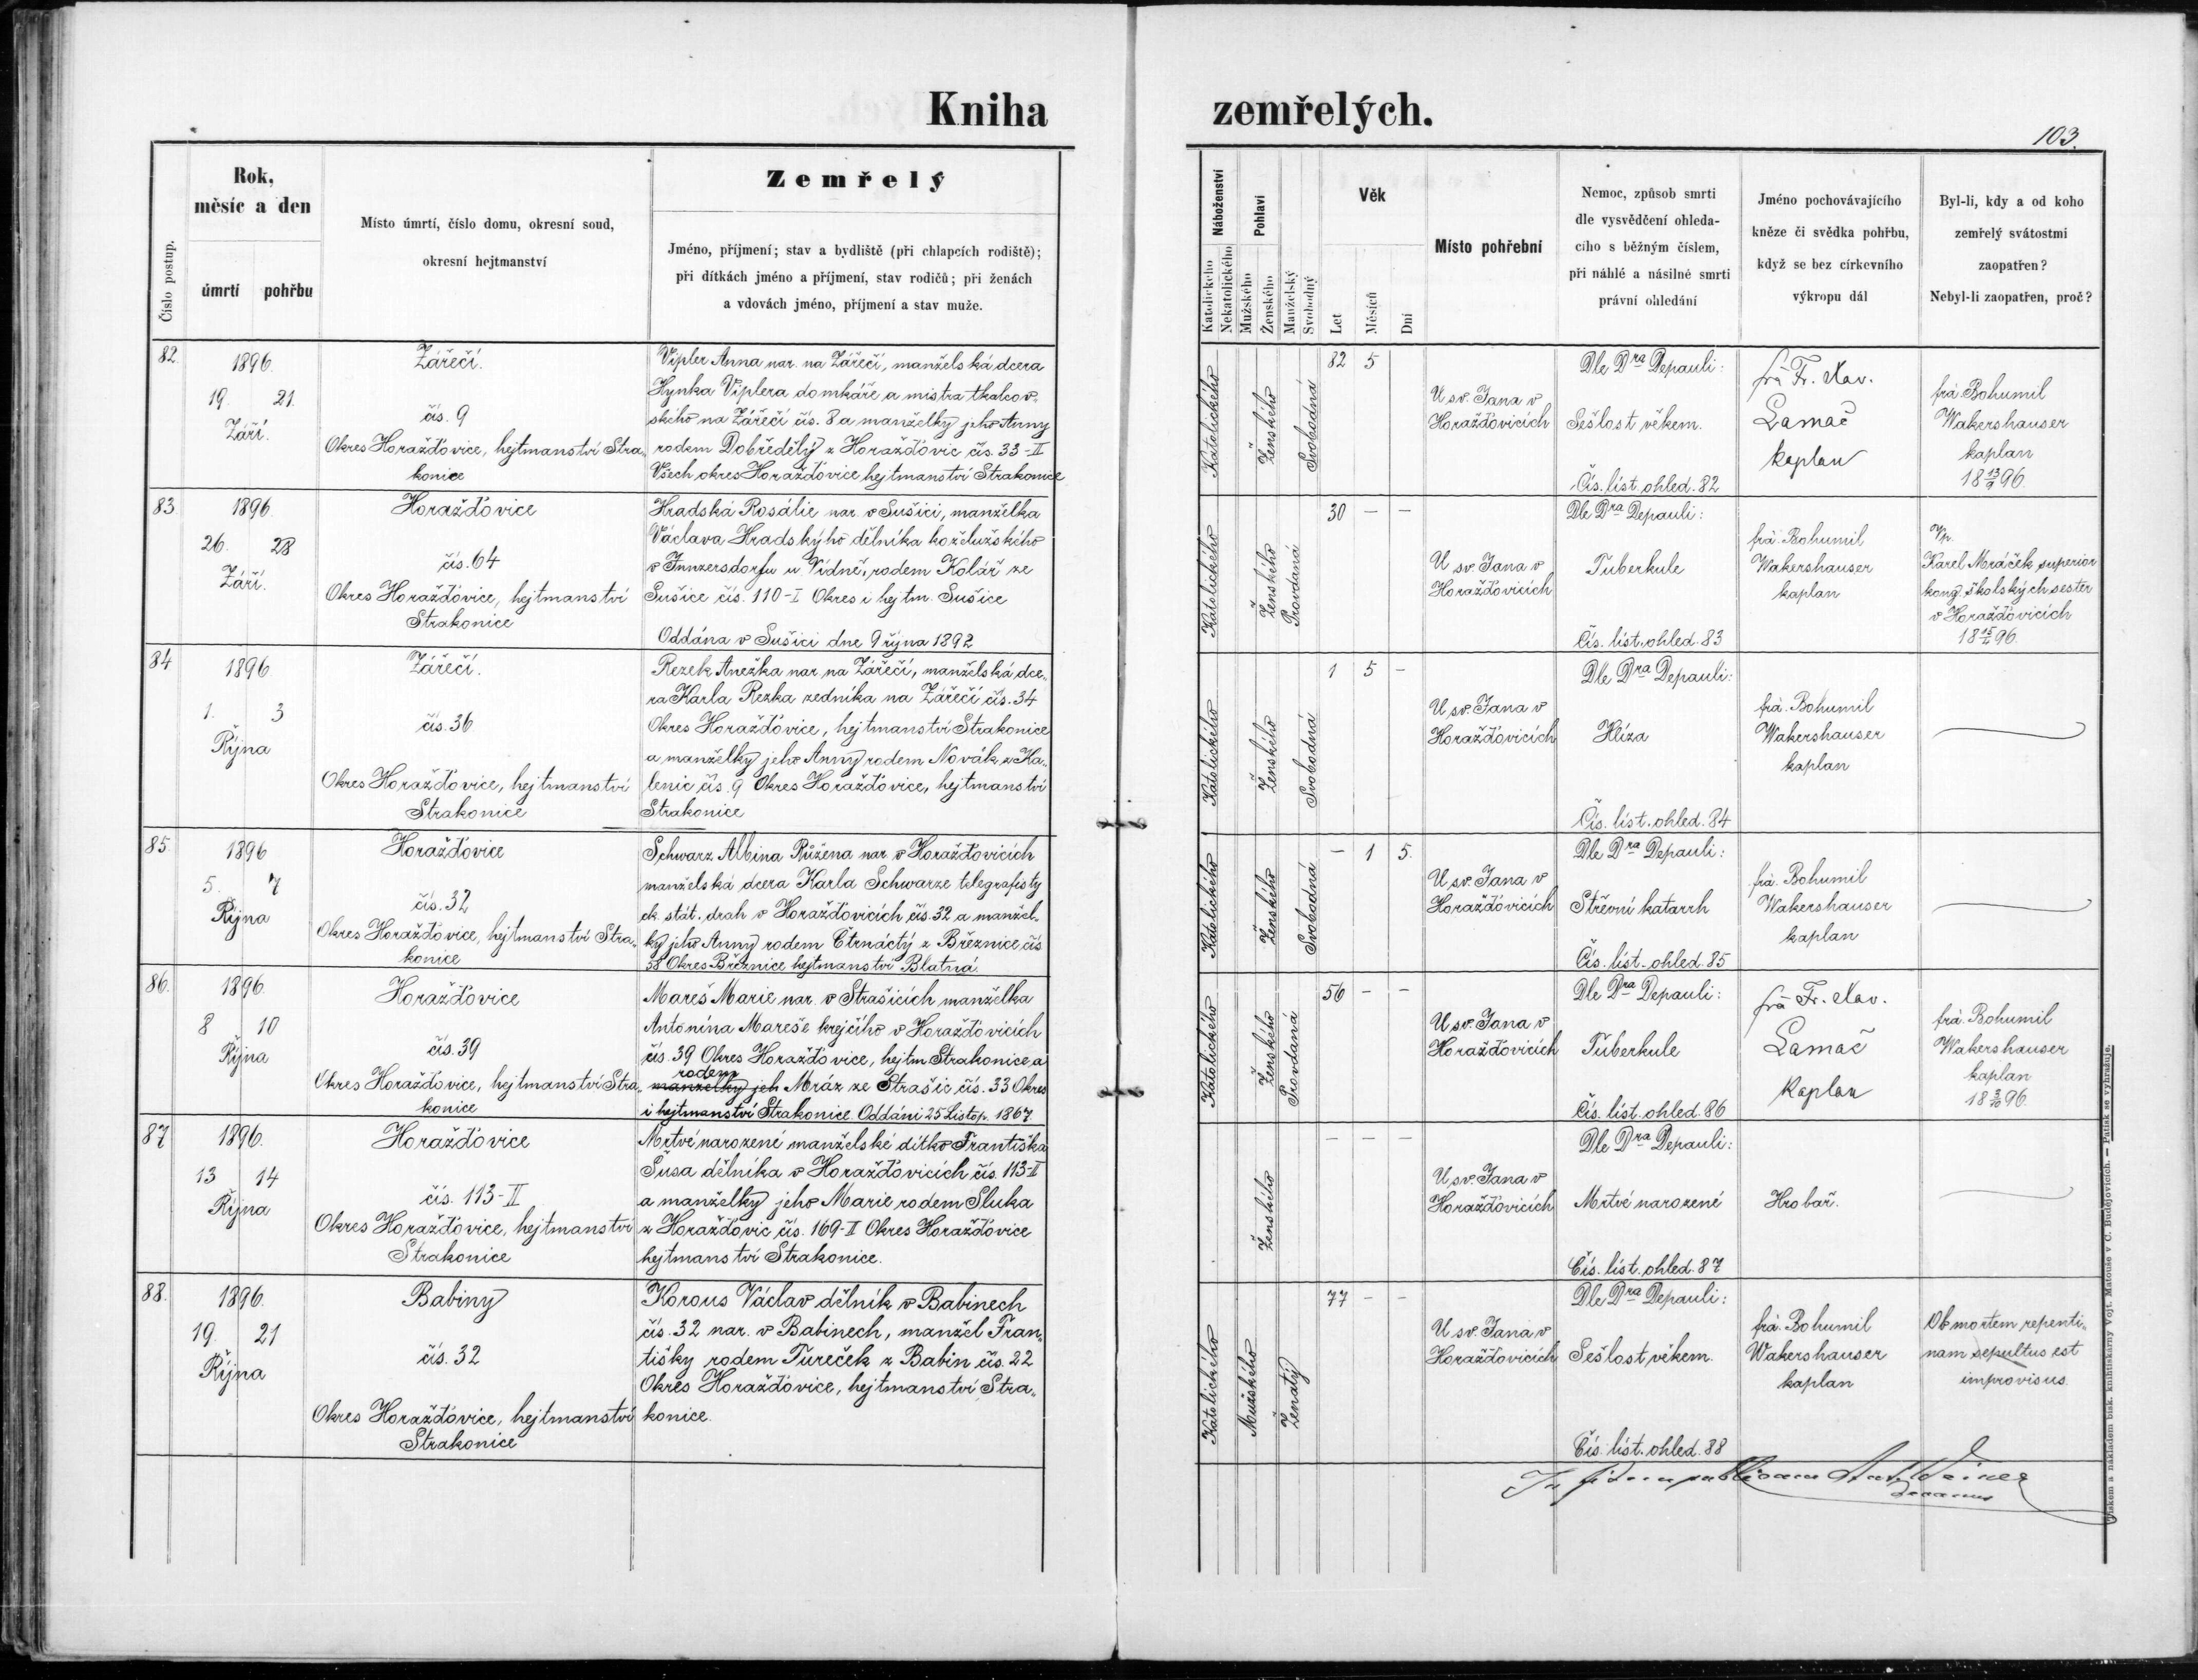 Kniha zemřelých.
103.
Číslo postup.
Rok,
měsíc a den
úmrtí pohřbu
Místo úmrtí, číslo domu, okresní soud,
okresní hejtmanství
Zemřelý
Jméno, příjmení; stav a bydliště (při chlapcích rodiště);
při dítkách jméno a příjmení, stav rodičů; při ženách
a vdovách jméno, příjmení a stav muže.
Náboženství
Katolického
Nekatolického
Pohlaví
Mužského
Ženského
Manželský
Svobodný
Věk
Let
Měsíců
Dní
Místo pohřební
Nemoc, způsob smrti
dle vysvědčení ohleda-
cího s běžným číslem,
při náhlé a násilné smrti
právní ohledání
Jméno pochovávajícího
kněze či svědka pohřbu,
když se bez církevního
výkropu dál
Byl-li, kdy a od koho
zemřelý svátostmi
zaopatřen?
Nebyl-li zaopatřen, proč?
82.
1896.
19. 21.
Září.
Zářečí.
čís. 9
Okres Horažďovice, hejtmanství Stra-
konice
Vipler Anna nar. na Zářečí, manželská dcera
Hynka Viplera domkáře a mistra tkalcov-
ského na Zářečí čís. 8 a manželky jeho Anny
rodem Dobředělý z Horažďovic čís. 33-II
Všech okres Horažďovice hejtmanství Strakonice
Katolického
Ženského
Svobodná
82 5
U sv. Jana v
Horažďovicích
Dle Dra Depauli:
Sešlost věkem.
Čís. list ohled. 82
frá Fr. Xav.
Lamač
kaplan
frá. Bohumil
Wakershauser
kaplan
18 13/9 96
83
1896.
26. 28
Září.
Horažďovice
čís. 64
Okres Horažďovice, hejtmanství
Strakonice
Hradská Rosálie nar. v Sušici, manželka
Václava Hradského dělníka koželužského
v Innzersdorfu u Vídně, rodem Kolář ze
Sušice čís. 110-I Okres i hejtm. Sušice
Oddána v Sušici dne 9 října 1892
Katolického
Ženského
Provdaná
30 — —
U sv. Jana v
Horažďovicích
Dle Dra Depauli:
Tuberkule
Čís. list. ohled. 83
frá. Bohumil
Wakershauser
kaplan
Vp.
Karel Mráček superior
kong. školských sester
v Horažďovicích
96.
84
1896.
1. 3
Října
Zářečí.
čís. 36
Okres Horažďovice, hejtmanství
Strakonice
Rezek Anežka nar. na Zářečí, manželská dce-
ra Karla Rezka zedníka na Zářečí čís. 34
Okres Horažďovice, hejtmanství Strakonice
a manželky jeho Anny rodem Novák z Ka-
lenic čís. 9 Okres Horažďovice, hejtmanství
Strakonice
Katolického
Ženského
Svobodná
1 5 —
U sv. Jana v
Horažďovicích
Dle Dra Depauli:
Hlíza
Čís. list. ohled. 84
frá. Bohumil
Wakershauser
kaplan
85.
1896
5. 7
Října
Horažďovice
čís. 32
Okres Horažďovice, hejtmanství Stra-
konice
Schwarz Albina Růžena nar. v Horažďovicích
manželská dcera Karla Schwarze telegrafisty
ck. stát. drah v Horažďovicích čís. 32 a manžel-
ky jeho Anny rodem Čtrnáctý z Březnice čís
58 Okres Březnice hejtmanství Blatná.
Katolického
Ženského
Svobodná
— 1 5.
U sv. Jana v
Horažďovicích
Dle Dra Depauli:
Střevní katarrh
Čís. list. ohled. 85
frá. Bohumil
Wakershauser
kaplan
86.
1896.
8 10
Října
Horažďovice
čís. 39
Okres Horažďovice, hejtmanství Stra-
konice
Mareš Marie nar. v Strašicích manželka
Antonína Mareše krejčího v Horažďovicích
čís. 39 Okres Horažďovice, hejtm Strakonice a
rodem
manželky jeh Mráz ze Strašic čís. 33 Okres
i hejtmanství Strakonice. Oddáni 25 Listop. 1867
Katolického
Ženského
Provdaná
56 — —
U sv. Jana v
Horažďovicích
Dle Dra Depauli:
Tuberkule
Čís. list. ohled. 86
frá Fr. Xav.
Lamač
kaplan
frá. Bohumil
Wakershauser
kaplan
96.
87
1896.
13 14
Října
Horažďovice
čís. 113-II
Okres Horažďovice, hejtmanství
Strakonice
Mrtvé narozené manželské dítko Františka
Šusa dělníka v Horažďovicích čís. 113-II
a manželky jeho Marie rodem Sluka
z Horažďovic čís. 169-II Okres Horažďovice
hejtmanství Strakonice.
Ženského
— — —
U sv. Jana v
Horažďovicích
Dle Dra Depauli:
Mrtvé narozené
Čís. list. ohled. 87
Hrobař.
88.
1896.
19. 21
Října
Babiny
čís. 32
Okres Horažďovice, hejtmanství
Strakonice
Korous Václav dělník v Babinech
čís. 32 nar. v Babinech, manžel Fran-
tišky rodem Tureček z Babin čís. 22
Okres Horažďovice, hejtmanství Stra-
konice.
Katolického
Mužského
Ženatý
77 — —
U sv. Jana v
Horažďovicích
Dle Dra Depauli:
Sešlost věkem.
Čís. list. ohled. 88
frá. Bohumil
Wakershauser
kaplan
Ob mortem repenti-
nam sepultus est
improvisus.
In fidem publicam
Decanus
Tiskem a nákladem bisk. knihtiskárny Vojt. Matouše v Č. Budějovicích. — Patisk se vyhražuje.